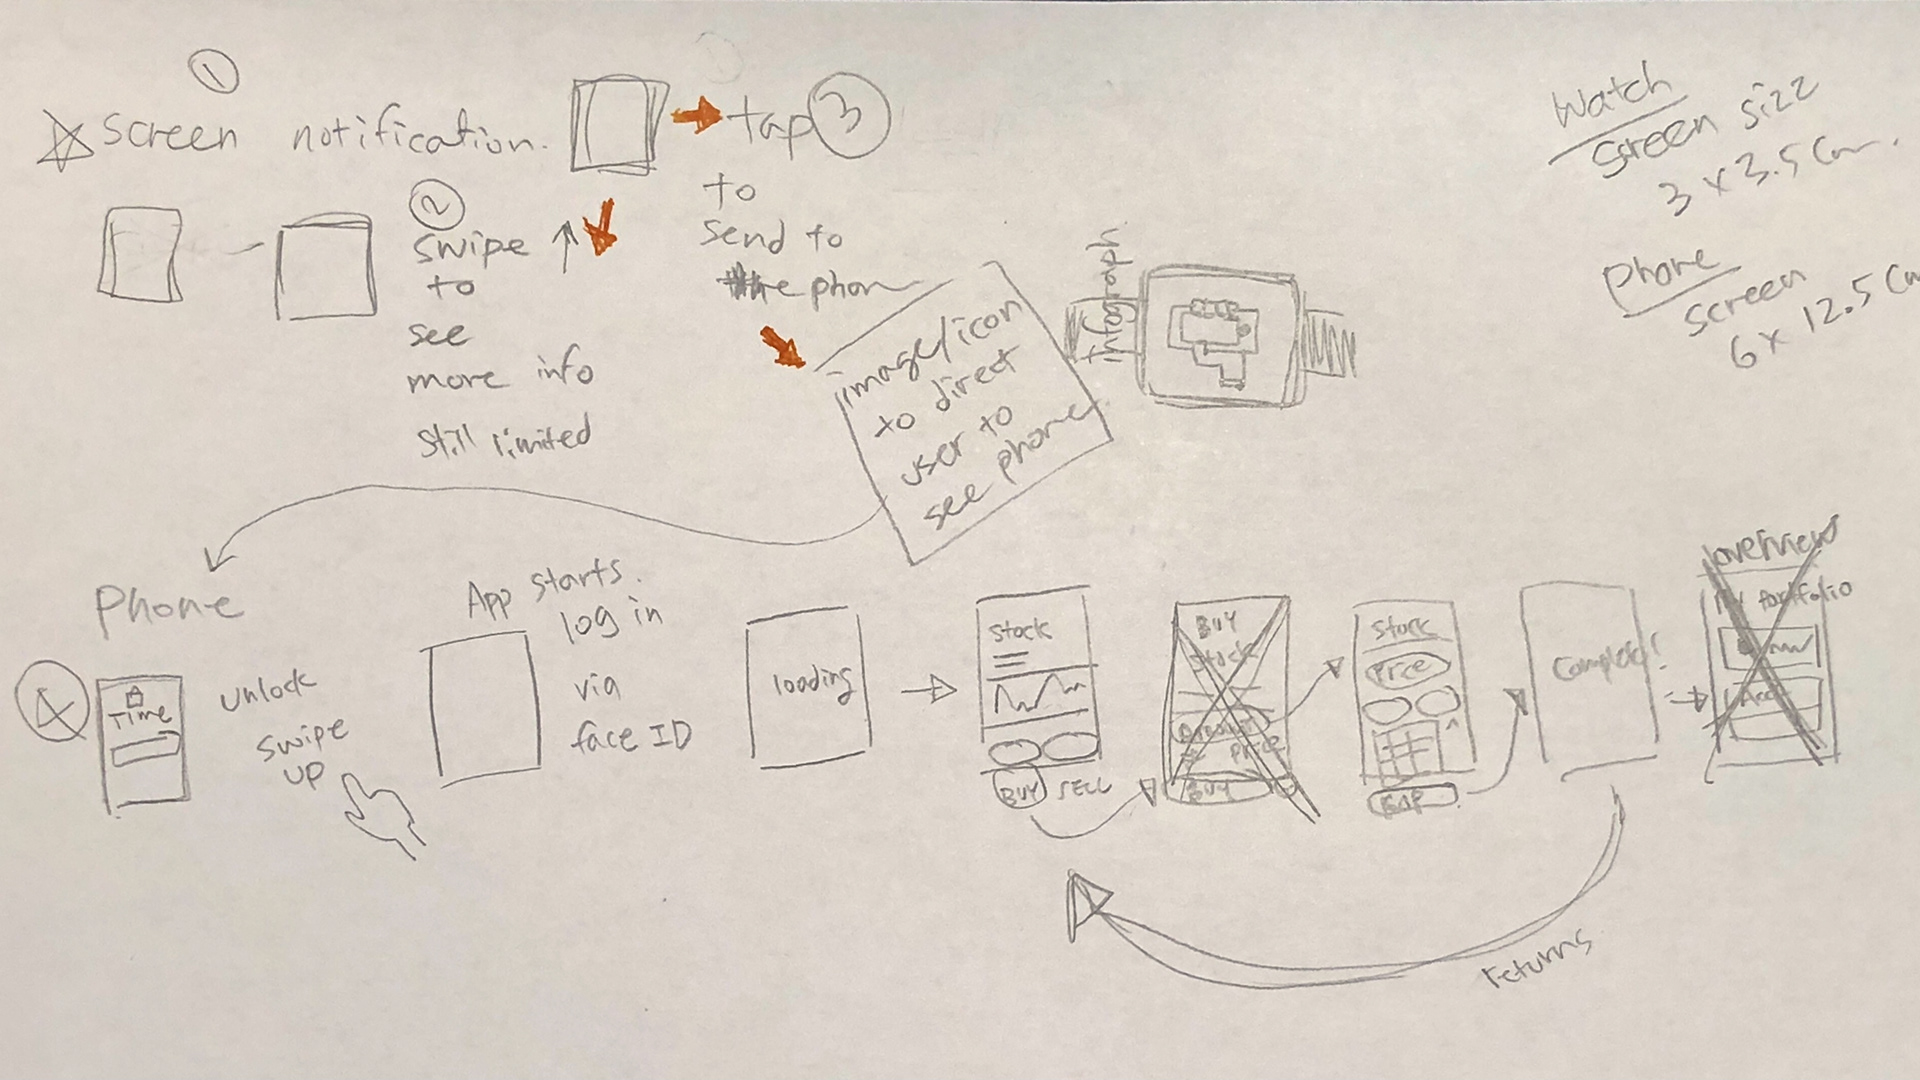 1
screen notification.
tap 3
to
send to
the phon
2
swipe
to
see
more info
still limited
image/icon
to direct
user to
see phone
Infograph
Watch
screen size
3 x 3.5 cm.
Phone
screen
6 x 12.5 cm
Phone
4
Time
Unlock
swipe
up
App starts.
log in
via
face ID
loading
stock
BUY SELL
BUY
stock
price
BUY
stock
Price
Complete!
overview
portfolio
returns